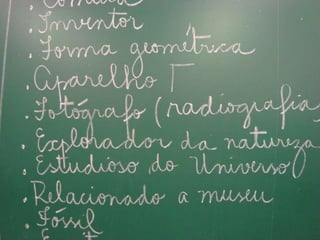 . Inventor
. Forma geométrica
. Aparelho
. Fotógrafo (radiografia
. Explorador da natureza
. Estudioso do Universo
. Relacionado a museu
. Fóssil